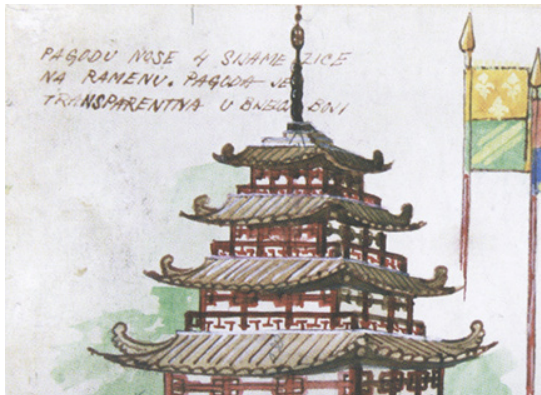 PAGODU NOSE 4 SIJAMEZICE
NA RAMENU. PAGODA JE
TRANSPARENTNA U BOJI